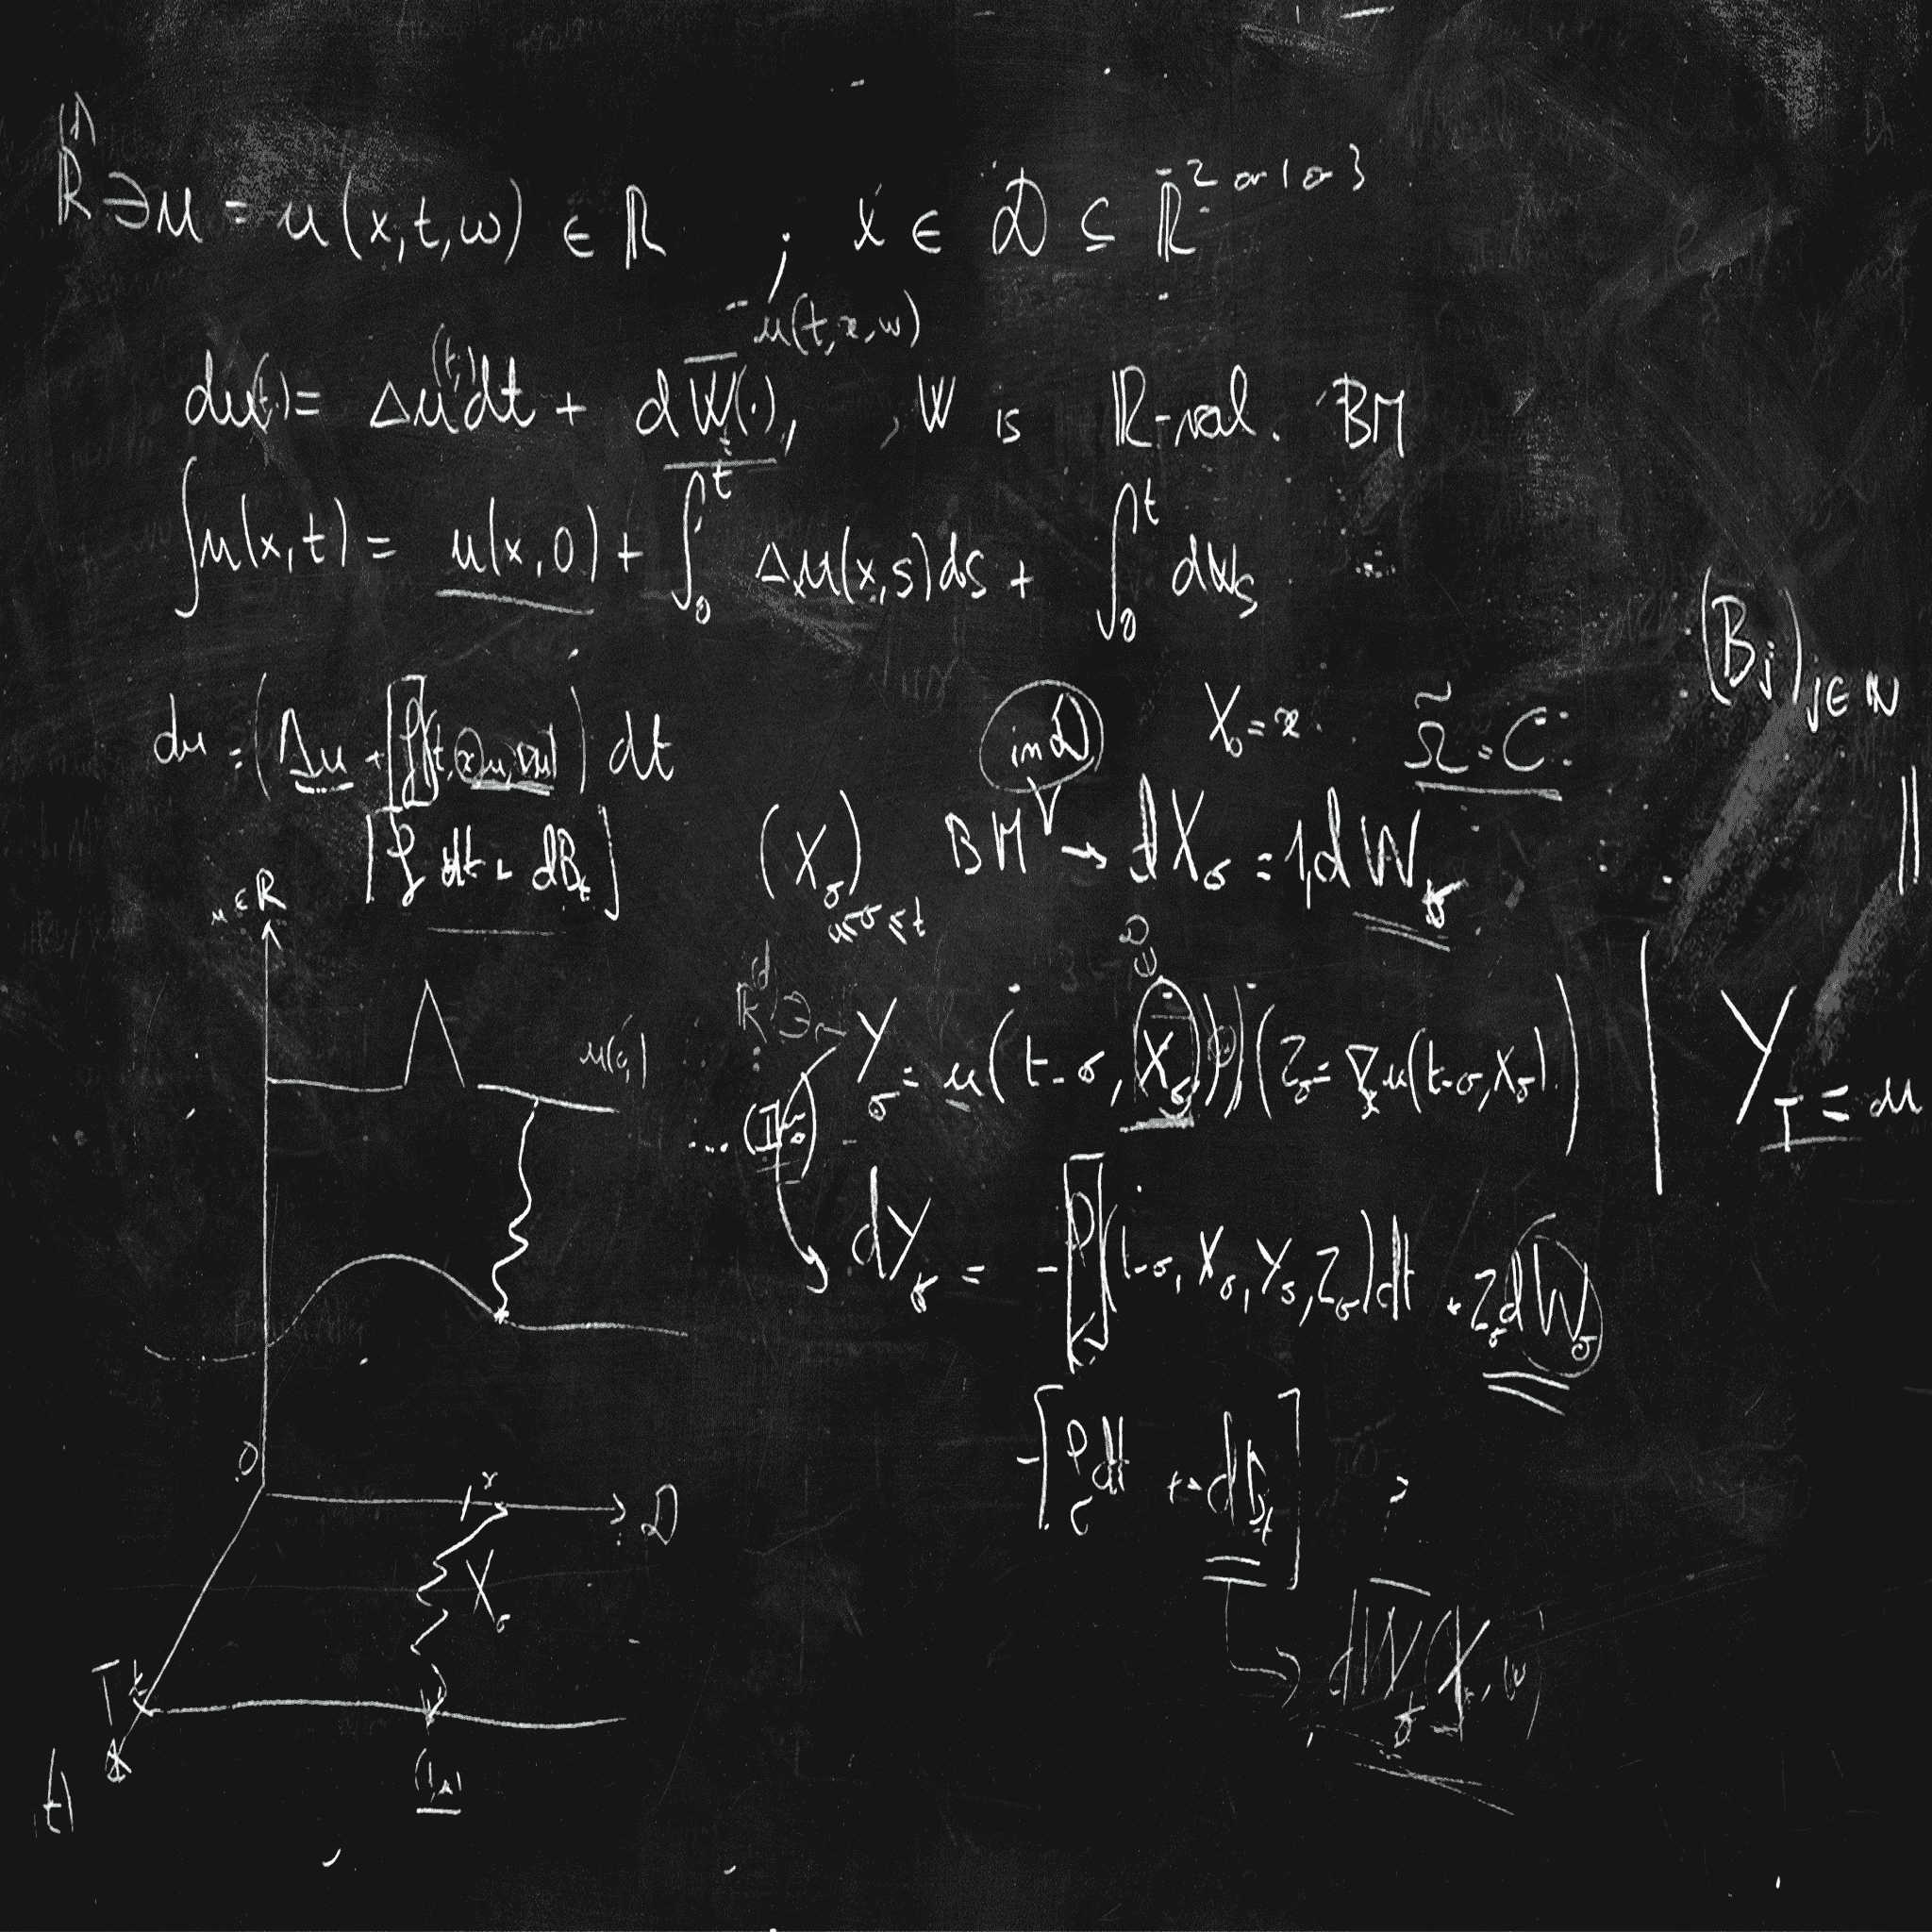 (1)
ℝ ∋ u = u(x,t,ω) ∈ ℝ ; x ∈ D ⊆ ℝ^{2 or 1 or 3}
u(t,x,ω)
du(t,·) = Δu(t,·)dt + dW(·), , W is ℝ-val. BM
∫u(x,t) = u(x,0) + ∫_0^t Δu(x,s)ds + ∫_0^t dW_s
(B_j)_{j∈ℕ}
du = (Δu + f(t,x,u,∇u)) dt
in D X_0 = x Ω̃ = C
[f dt + dB_t]
(X_σ)_{0≤σ≤t} BM → dX_σ = 1,dW_σ
u ∈ ℝ
D
ℝ^d ∋
u(0,·) Y_σ = u(t-σ, X_σ), (Z_σ = ∇_x u(t-σ, X_σ)) | Y_T = u
dY_σ = -f(t-σ, X_σ, Y_σ, Z_σ)dt + Z_σ dW_σ
0
-[f dt + dB_t]
x D
X_σ
T t
dW_σ(X, ω)
(t,x)
t)